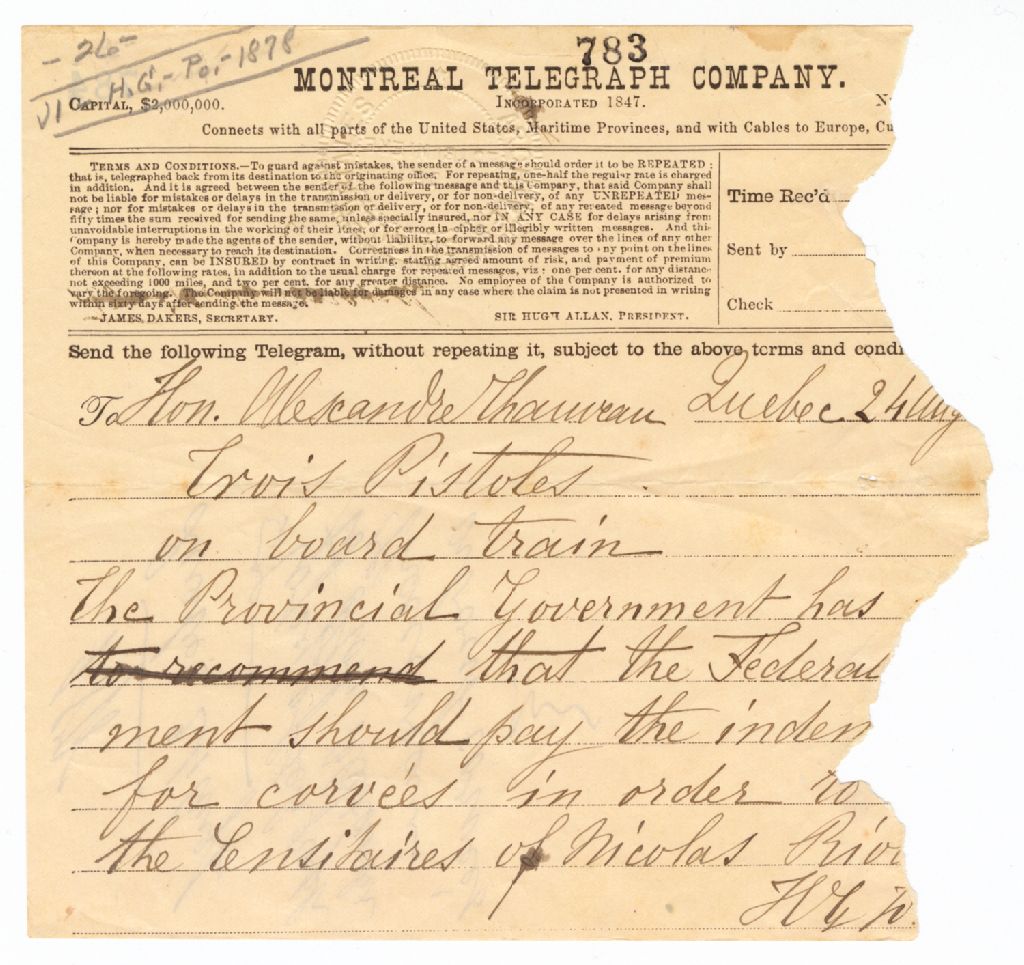 - 26 -
H.G.- Po.- 1878
VI
783
MONTREAL TELEGRAPH COMPANY.
CAPITAL, $2,000,000.
INCORPORATED 1847.
N
Connects with all parts of the United States, Maritime Provinces, and with Cables to Europe, Cu
TERMS AND CONDITIONS.—To guard against mistakes, the sender of a message should order it to be REPEATED;
that is, telegraphed back from its destination to the originating office. For repeating, one-half the regular rate is charged
in addition. And it is agreed between the sender of the following message and this Company, that said Company shall
not be liable for mistakes or delays in the transmission or delivery, or for non-delivery, of any UNREPEATED mes-
sage; nor for mistakes or delays in the transmission or delivery, or for non-delivery, of any repeated message beyond
fifty times the sum received for sending the same, unless specially insured, nor IN ANY CASE for delays arising from
unavoidable interruptions in the working of their lines, or for errors in cipher or illegibly written messages. And thi
Company is hereby made the agents of the sender, without liability, to forward any message over the lines of any other
Company, when necessary to reach its destination. Correctness in the transmission of messages to any point on the lines
of this Company, can be INSURED by contract in writing, stating agreed amount of risk, and payment of premium
thereon at the following rates, in addition to the usual charge for repeated messages, viz: one per cent. for any distance
not exceeding 1000 miles, and two per cent. for any greater distance. No employee of the Company is authorized to
vary the foregoing. The Company will not be liable for damages in any case where the claim is not presented in writing
within sixty days after sending the message.
JAMES DAKERS, SECRETARY.
SIR HUGH ALLAN, PRESIDENT.
Time Rec'd
Sent by
Check
Send the following Telegram, without repeating it, subject to the above terms and condi
To Hon. Alexandre Chauveau Quebec 24 Aug
Trois Pistoles
on board train
The Provincial Government has
to recommend that the Federal
ment should pay the indem
for corvées in order to
the Censitaires of Nicolas Riou